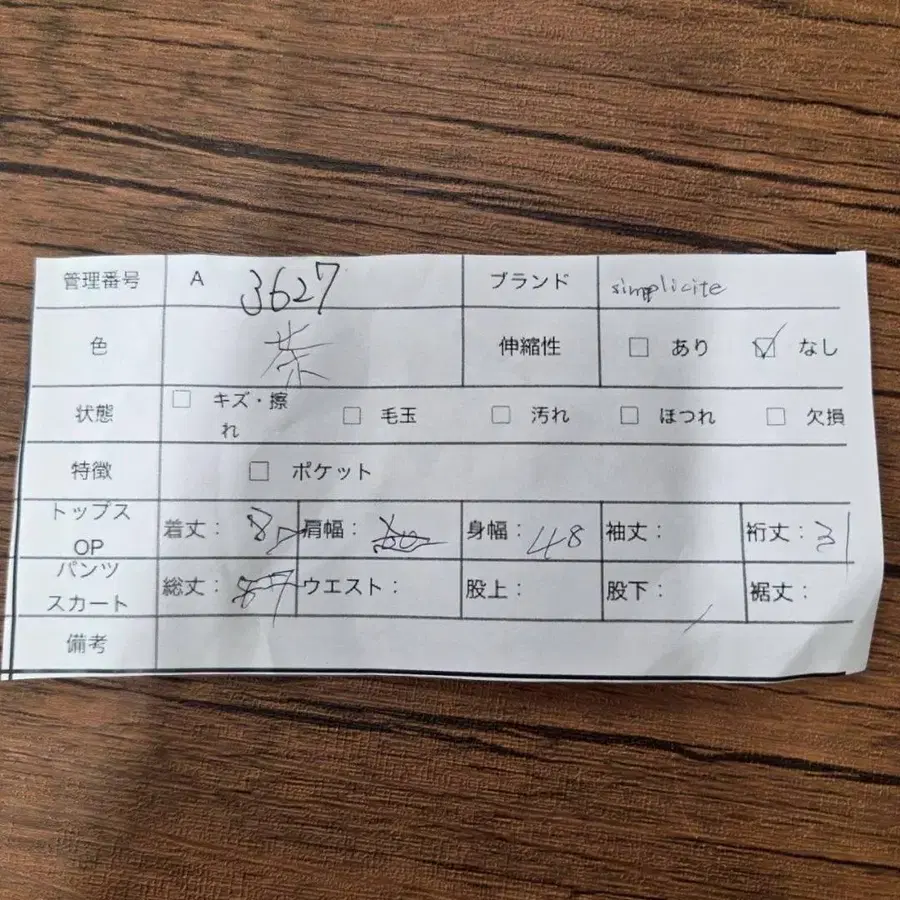 管理番号 A 3627 ブランド simplicite
色 茶 伸縮性 □ あり ☑ なし
状態 □ キズ・擦れ □ 毛玉 □ 汚れ □ ほつれ □ 欠損
特徴 □ ポケット
トップス OP 着丈: 87 肩幅: 身幅: 48 袖丈: 裄丈: 31
パンツ スカート 総丈: ウエスト: 股上: 股下: 裾丈:
備考